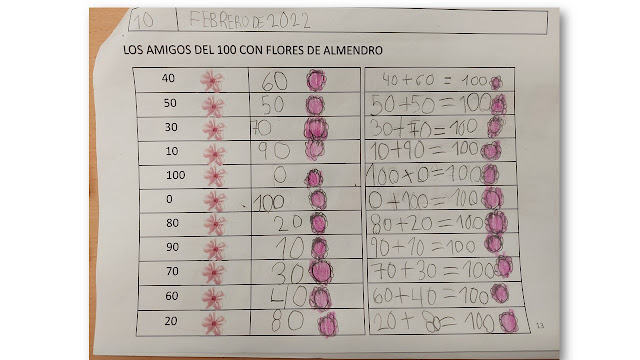 10 FEBRERO DE 2022
LOS AMIGOS DEL 100 CON FLORES DE ALMENDRO
40 60 40+60=100
50 50 50+50=100
30 70 30+70=100
10 90 10+90=100
100 0 100+0=100
0 100 0+100=100
80 20 80+20=100
90 10 90+10=100
70 30 70+30=100
60 40 60+40=100
20 80 20+80=100
13